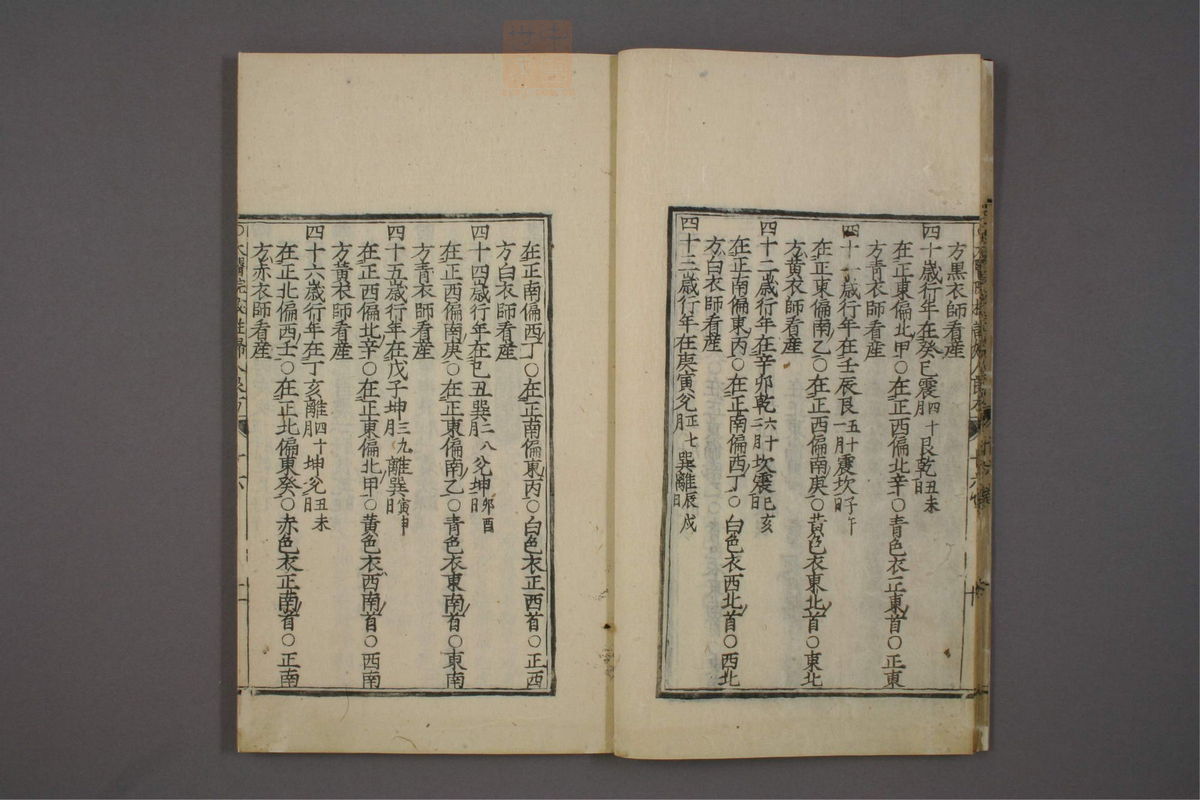 方黑衣師看産
四十歳行年在癸巳震四十月艮乾丑未日
在正東偏北甲○在正西偏北辛○青色衣正東首○正東
方青衣師看産
四十一歳行年在壬辰艮五十一月震坎子午日
在正東偏南乙○在正西偏南庚○黄色衣東北首○東北
方黄衣師看産
四十二歳行年在辛卯乾六十二月坎震巳亥日
在正南偏東丙○在正南偏西丁○白色衣西北首○西北
方白衣師看産
四十三歳行年在庚寅兊正七月巽離辰戌日
在正南偏西丁○在正南偏東丙○白色衣正西首○正西
方白衣師看産
四十四歳行年在己丑巽二八月兊坤卯酉日
在正西偏南庚○在正東偏南乙○青色衣東南首○東南
方青衣師看産
四十五歳行年在戊子坤三九月離巽寅申日
在正西偏北辛○在正東偏北甲○黄色衣西南首○西南
方黄衣師看産
四十六歳行年在丁亥離四十月坤兊丑未日
在正北偏西壬○在正北偏東癸○赤色衣正南首○正南
方赤衣師看産